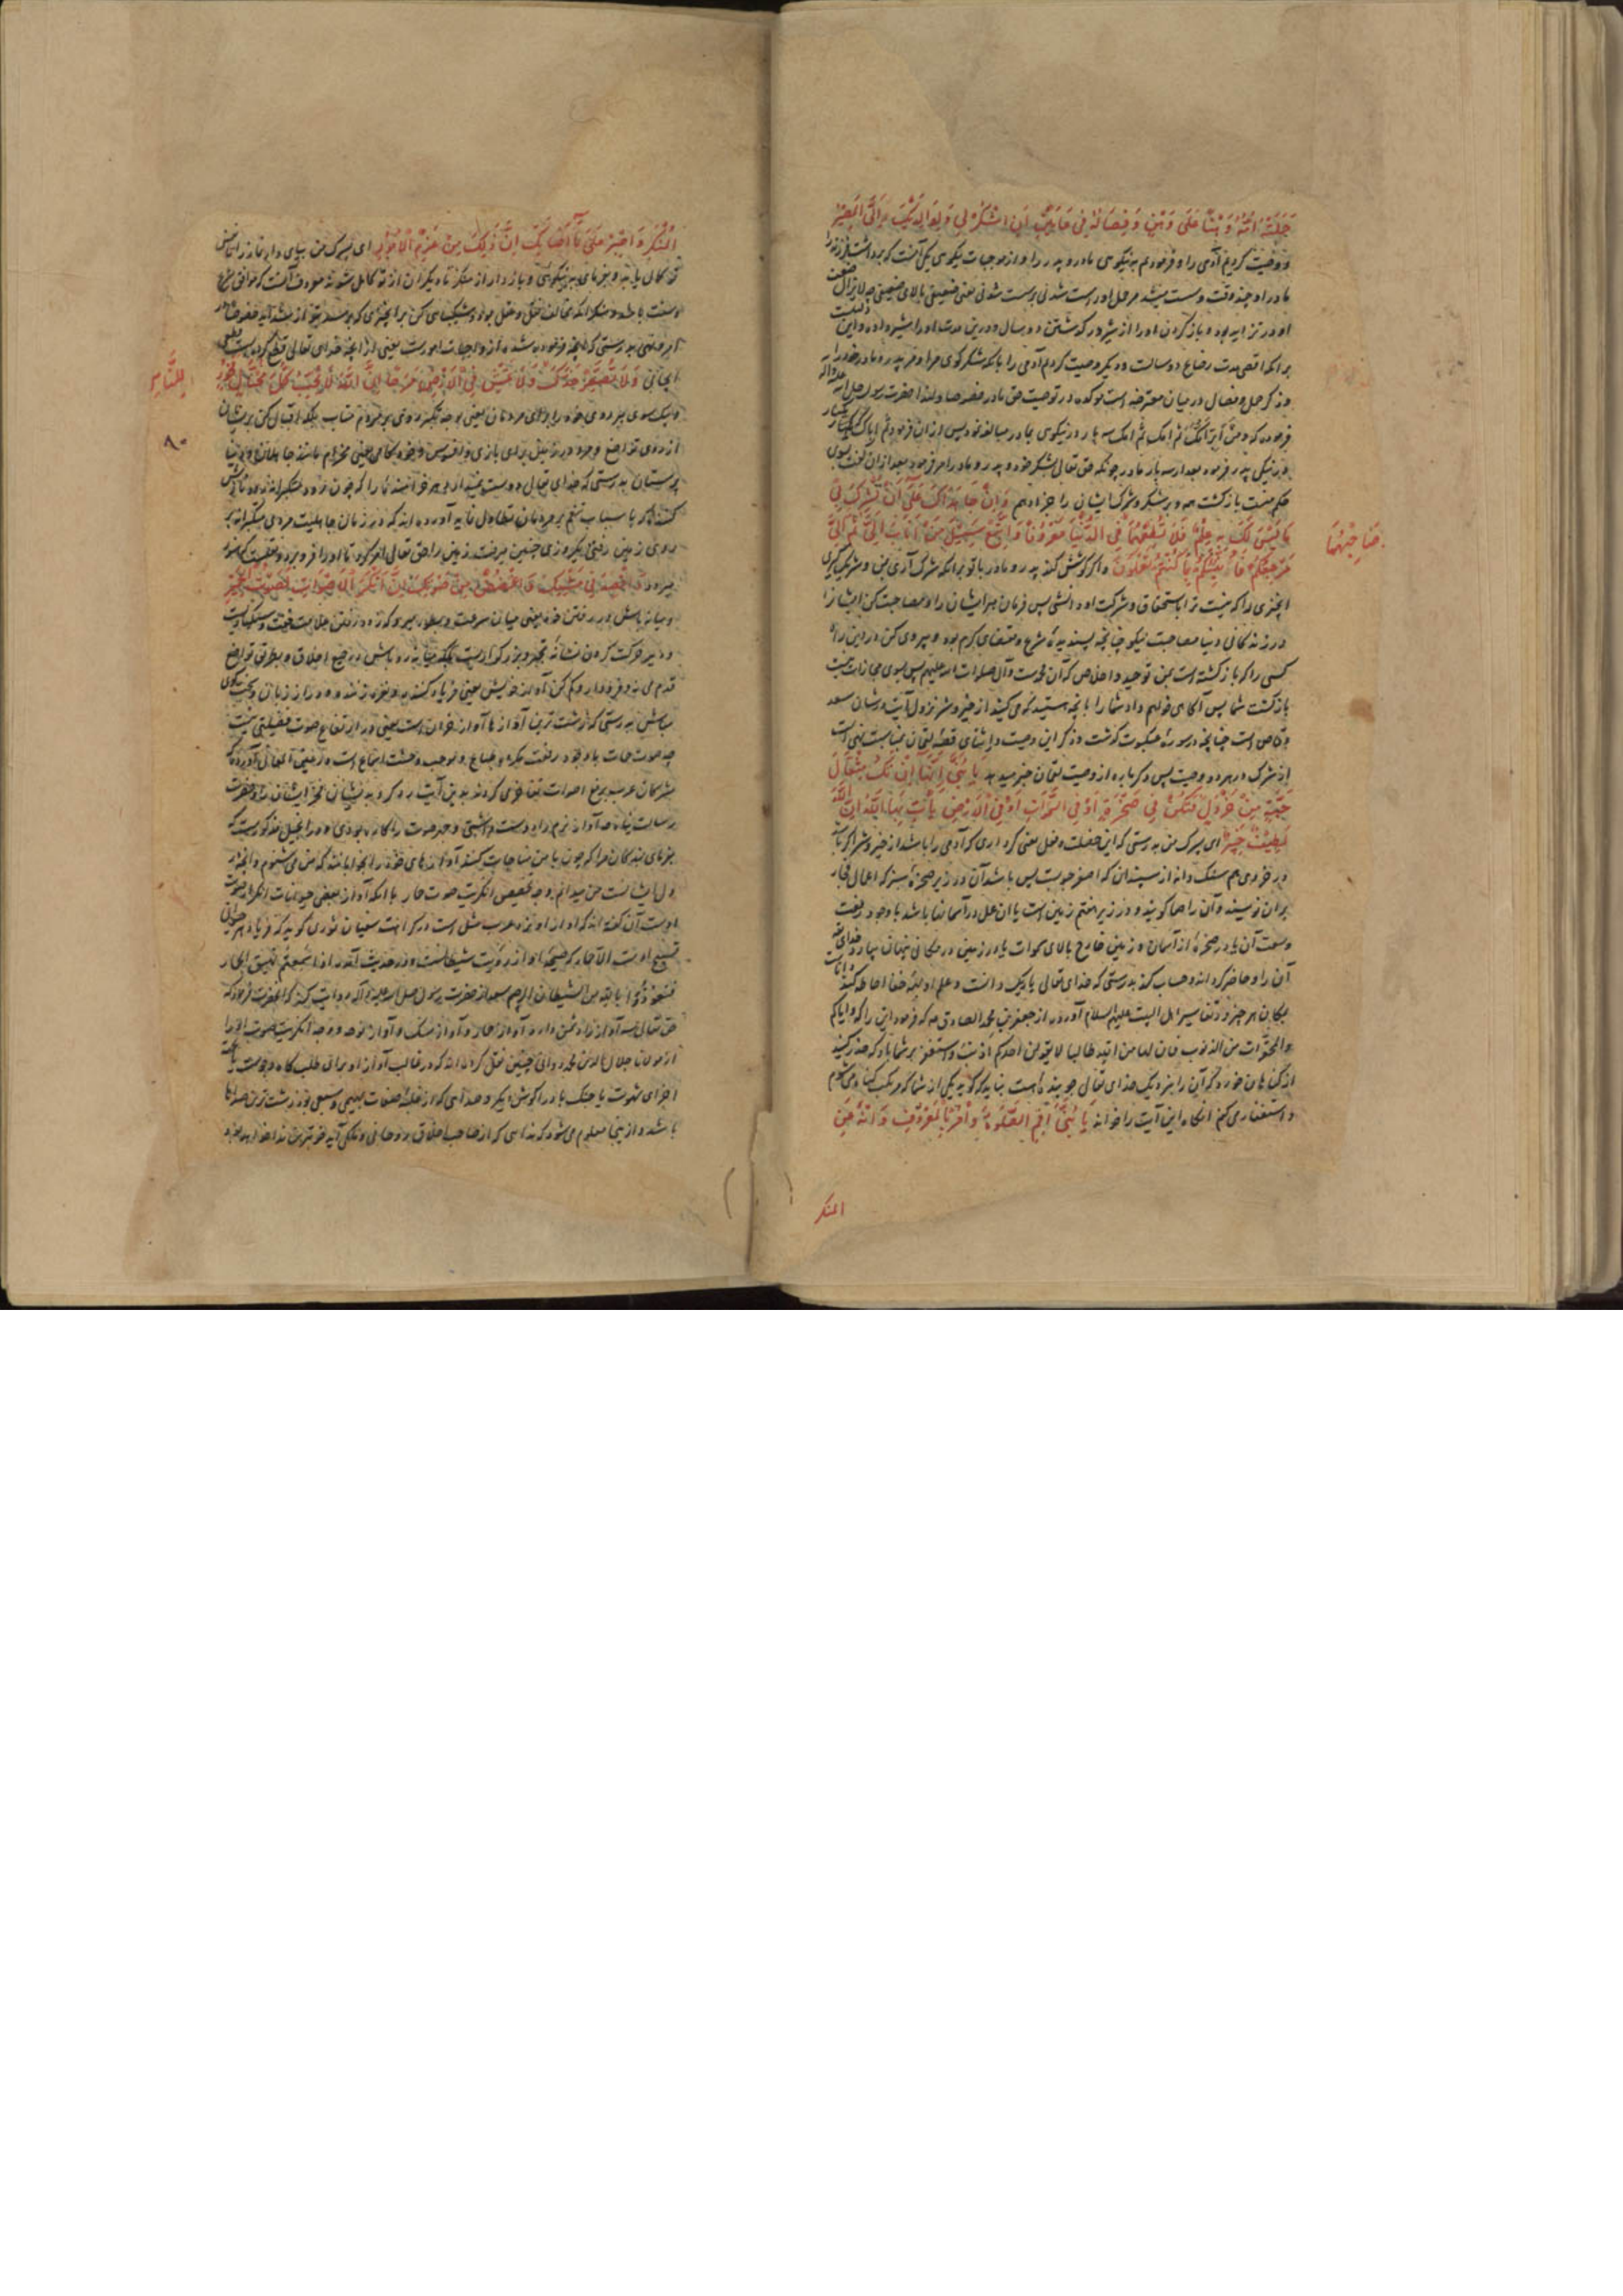 حَمَلَتْهُ اُمُّهُ وَهْنًا عَلَى وَهْنٍ وَ فِصَالُهُ فِي عَامَيْنِ اَنِ اشْكُرْ لِي وَ لِوَالِدَيْكَ اِلَيَّ الْمَصِيرُ
و وصیت کردیم آدمی را و فرمودیم به نیکویی مادر و پدر را و از موجبات نیکویی یکی آنست که برداشت فرزند را
مادر او چند وقت و سست میشد در حمل او سست شدنی بر سست شدنی یعنی ضعیفی بالای ضعیفی چه لایزال ضعف
او در تزاید بود و باز کردن او را از شیر در گذشتن دو سال و درین مدت او را شیر داده و این
بر آنکه اقصی مدت رضاع دو سالست و دیگر وصیت کردیم آدمی را بآنکه شکر گوی مرا و مر پدر و مادر خود را
و ذکر حمل و فصال در میان معترضه است موکده در توصیت حق مادر خصوصا و لهذا حضرت رسول صلی الله علیه و آله
فرموده که و من ابر امک ثم امک ثم امک سه بار در نیکویی مادر مبالغه نمود پس از ان فرمود ثم اباک یکبار
در نیکی پدر فرمود بعد از سه بار مادر چونکه حق تعالی بشکر خود و پدر و مادر امر فرمود بعد از ان گفت بسوی
حکم منست بازگشت همه و بر شکر و شرک ایشان را جزا دهم وَ اِنْ جَاهَدَاكَ عَلَى اَنْ تُشْرِكَ بِي
مَا لَيْسَ لَكَ بِهِ عِلْمٌ فَلَا تُطِعْهُمَا فِي الدُّنْيَا مَعْرُوفًا وَ اتَّبِعْ سَبِيلَ مَنْ اَنَابَ اِلَيَّ ثُمَّ اِلَيَّ
صَاحِبْهُمَا
مَرْجِعُكُمْ فَاُنَبِّئُكُمْ بِمَا كُنْتُمْ تَعْمَلُونَ و اگر کوشش کنند پدر و مادر با تو بر آنکه شرک آری بمن و شریک گیری
آنچیزی را که نیست ترا باستحقاق و شرکت او دانشی پس فرمان مبر ایشان را و مصاحبت کن ایشان را
در زندگانی دنیا مصاحبت نیکو چنانچه پسندیده شرع و مقتضای کرم بود و پیروی کن در دین راه
کسی را که بازگشته است بمن توحید و اخلاص که آن محمدست و آل صلوات الله علیهم پس بسوی مجازات منست
بازگشت شما پس آگاهی خواهم داد شما را بآنچه هستید که می کنید از خیر و شر نزول آیت در شان سعد
وقاص است چنانچه در سوره عنکبوت گذشت و ذکر این وصیت در اثنای قصه لقمان بمناسبت نهی است
از شرک در هر دو وصیت پس دگر باره از وصیت لقمان خبر میدهد يَا بُنَيَّ اِنَّهَا اِنْ تَكُ مِثْقَالَ
حَبَّةٍ مِنْ خَرْدَلٍ فَتَكُنْ فِي صَخْرَةٍ اَوْ فِي السَّمٰوَاتِ اَوْ فِي الْاَرْضِ يَأْتِ بِهَا اللّٰهُ اِنَّ اللّٰهَ
لَطِيفٌ خَبِيرٌ ای پسرک من بدرستی که این خصلت و فعل یعنی کرداری که آدمی را باشد از خیر و شر اگر باشد
در خردی هم سنگ دانه از سپندان که اصغر حبوبست پس باشد آن در زیر صخره سبز که اعمال فجار
بر ان نویسند و آن را صما گویند و در زیر هفتم زمین است یا ان عمل در آسمانها باشد با وجود رفعت
وسعت آن یا در صخره از آسمان و زمین خارج بالای سموات یا در زمین در مکانی پنهان بیارد خدای
آن را و حاضر کرده اند و حساب کند بدرستی که خدای تعالی باریک دانست و علم او بهمه خفا احاطه کننده
بکان هر چیز و در تفاسیر اهل البیت علیهم السلام آورده از جعفر بن محمد الصادق ع که فرمود این را که و ایاکم
والمحقرات من الذنوب فان لها من الله طالبا لا یقولن احدکم اذنب و استغفر بر شما باد که حذر کنید
از گناهان خورد که آن را بنزدیک خدای تعالی جوینده است نباید که گوید یکی از شما که مرتکب گناه می شوم
و استغفار می کنم آنگاه این آیت را خواند يَا بُنَيَّ اَقِمِ الصَّلٰوةَ وَ اْمُرْ بِالْمَعْرُوفِ وَ انْهَ عَنِ
المنکر
الْمُنْكَرِ وَ اصْبِرْ عَلَى مَا اَصَابَكَ اِنَّ ذٰلِكَ مِنْ عَزْمِ الْاُمُورِ ای پسرک من بپای دار نماز را
تو کمال یابد و بفرمای به نیکویی و باز دار از منکر تا دیگران از تو کامل شوند معروف آنست که موافق شرع
و سنت باشد و منکر آنکه مخالف عقل و نقل بود و شکیبایی کن بر آنچیزی که برسد بتو از شداید خصوصا در
امر و نهی بدرستی که آنچه فرموده شده از واجبات امورست یعنی از آنچه خدای تعالی قطع کرده است
ایجابی وَ لَا تُصَعِّرْ خَدَّكَ وَ لَا تَمْشِ فِي الْاَرْضِ مَرَحًا اِنَّ اللّٰهَ لَا يُحِبُّ كُلَّ مُخْتَالٍ فَخُورٍ
لِلنَّاسِ
و یک سوی مبر روی خود را برای مردمان یعنی بوجه تکبر روی بر مردم متاب بلکه اقبال کن بر ایشان
۸۰
از روی تواضع و مرو در زمین برای بازی و افسوس و خودکامی یعنی مخرام مانند جاهلان و دنیا
پرستان بدرستی که خدای تعالی دوست نمیدارد هر خرامنده را که چون مردم متکبرانه رود نازش
کننده که با سباب تنعم بر مردمان تطاول نماید آورده اند که در زمان جاهلیت مردی متکبرانه بر
روی زمین رفتی یک روزی چنین میرفت زمین را حق تعالی امر کرد تا او را فرو برد
میرود وَ اقْصِدْ فِي مَشْيِكَ وَ اغْضُضْ مِنْ صَوْتِكَ اِنَّ اَنْكَرَ الْاَصْوَاتِ لَصَوْتُ الْحَمِيرِ
و میانه باش در رفتن خود یعنی میان سرعت و بطوء میرو که زود رفتن علامت خفت و سبکباریست
و دیر حرکت کردن نشانه تجبر و بزرگواریست بلکه میانه رو باش در جمیع اخلاق و بطریق تواضع
قدم می نه و فرود آر و کم کن آواز خویش یعنی فریاد کننده و نعره زننده و دراز زبان و سخت گوی
مباش بدرستی که زشت ترین آوازها آواز خران است یعنی در ارتفاع صوت فضیلتی نیست
چه صوت حمار باوجود رفعت مکروه طباع و موجب وحشت اسماع است و در عین المعانی آورده که
مشرکان عرب برفع اصوات تفاخر می کردند بدین آیت رد کرد بر ایشان فخر ایشان را و حضرت
رسالت پناه ص آواز نرم را دوست داشتی و جهر صوت را کاره بودی و در انجیل مذکورست که
بفرمای بندگان مرا که چون با من مناجات کنند آوازهای خود را بخوابانند که من می شنوم و آنچه در
دل ایشانست من میدانم و وجه تخصیص انکریت صوت حمار با آنکه آواز بعضی حیوانات انکر از صوت
اوست آن گفته اند که آواز او نزد عرب مثل است در کراهت سفیان ثوری گوید که فریاد هر حیوانی
تسبیح اوست الا حمار که صیحه او از رؤیت شیطانست و در حدیث آمده اذا سمعتم نهیق الحمار
فتعوذوا بالله من الشیطان الرجیم سعد از حضرت رسول صلی الله علیه و آله روایت کند که آنحضرت فرمود که
حق تعالی سه آواز را دشمن دارد آواز حمار و آواز سگ و آواز نوحه و وجه انکریت صوت او را
از مولانا جلال الدین محمد رومی چنین نقل کرده اند که در غالب آواز او برای طلب کاه و جوست یا جهت
اجرای شهوت یا جنگ با دراز گوش دیگر و صدایی که از غلبه صفات بهیمی و سبعی بود زشت ترین صداها
باشد و از ینجا معلوم می شود که ندایی که از صاحب اخلاق روحانی و ملکی آید خوبترین نداها خواهد بود